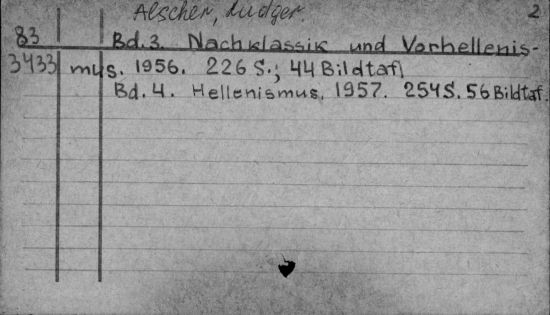 Alscher, Ludger. 2
83 Bd. 3. Nachklassik und Vorhellenis-
3433 mus. 1956. 226 S.; 44 Bildtaf
Bd. 4. Hellenismus. 1957. 254 S. 56 Bildtaf.